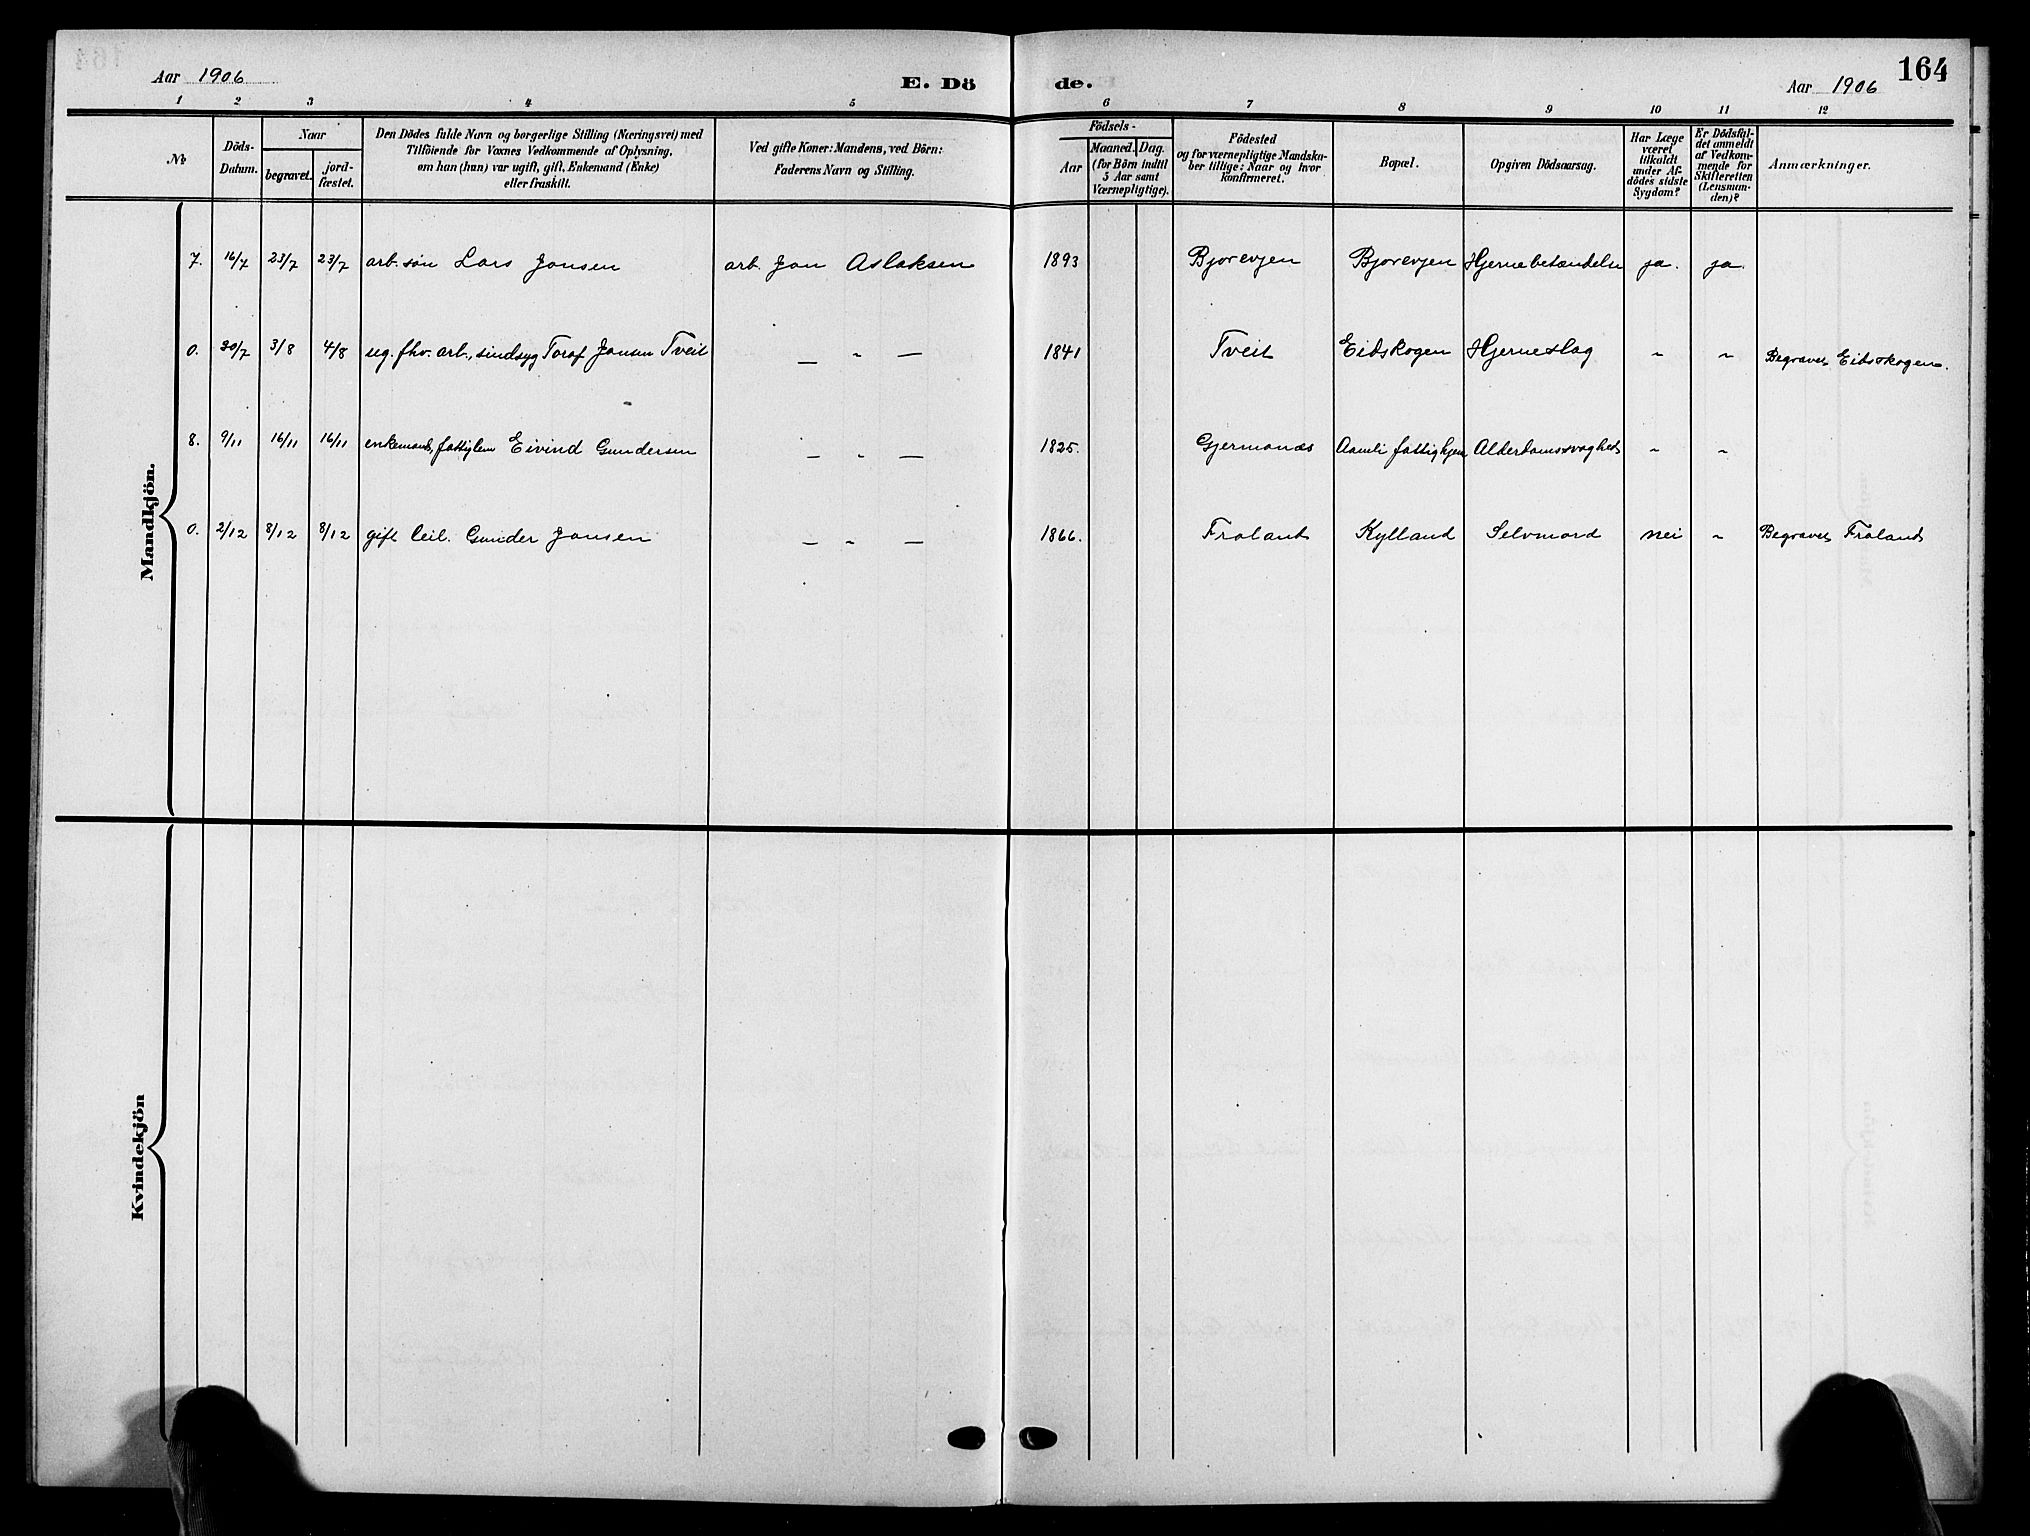 Aar 1906
E. Dö
de.
164
Aar 1906
1 2 3 4 5 6 7 8 9 10 11 12
No
Döds-
Datum.
Naar
begravet.
jord-
fæstet.
Den Dödes fulde Navn og borgerlige Stilling (Næringsvei) med
Tilföiende for Voxnes Vedkommende af Oplysning,
om han (hun) var ugift, gift, Enkemand (Enke)
eller fraskilt.
Ved gifte Koner: Mandens, ved Börn:
Faderens Navn og Stilling.
Födsels-
Aar
Maaned. Dag.
(for Börn indtil
5 Aar samt
Værnepligtige).
Födested
og for værnepligtige Mandska-
ber tillige: Naar og hvor
konfirmeret.
Bopæl.
Opgiven Dödsaarsag.
Har Læge
været
tilkaldt
under Af-
dödes sidste
Sygdom?
Er Dödsfal-
det anmeldt
af Vedkom-
mende for
Skifteretten
(Lensman-
den)?
Anmærkninger.
Mandkjön.
7. 16/7 23/7 23/7 arb. søn Lars Jonsen arb. Jon Aslaksen 1893 Bjorevjen Bjorevjen Hjernebetændelse ja. ja.
0. 30/7 3/8 4/8 ug. fhv. arb., sindsyg Toraf Jonsen Tveit — " — 1841 Tveit Eidskogen Hjerneslag " " Begravet Eidsskogen.
8. 9/11 16/11 16/11 enkemand, fattiglem Eivind Gundersen — " — 1825. Gjermonæs Aamli fattighjem Alderdomssvaghed " "
0. 2/12 8/12 8/12 gift leil. Gunder Jonsen — " — 1866. Froland Kylland Selvmord nei " Begravet Froland
Kvindekjön